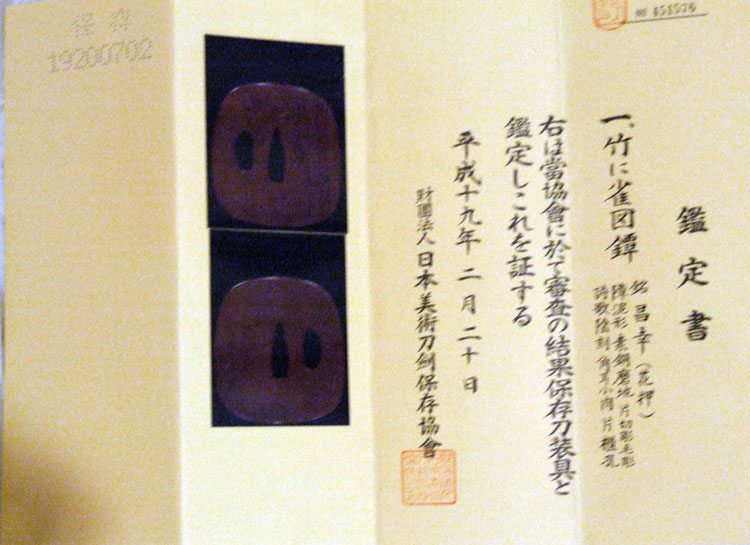 鑑定書
一、竹に雀図鐔
銘 昌幸(花押)
障泥形 素銅磨地 片切彫毛彫
詩歌陰刻 角耳小肉 片櫃孔
右は當協會に於て審査の結果保存刀装具と
鑑定しこれを証する
平成十九年二月二十日
財團法人 日本美術刀剣保存協會
保存
19200702